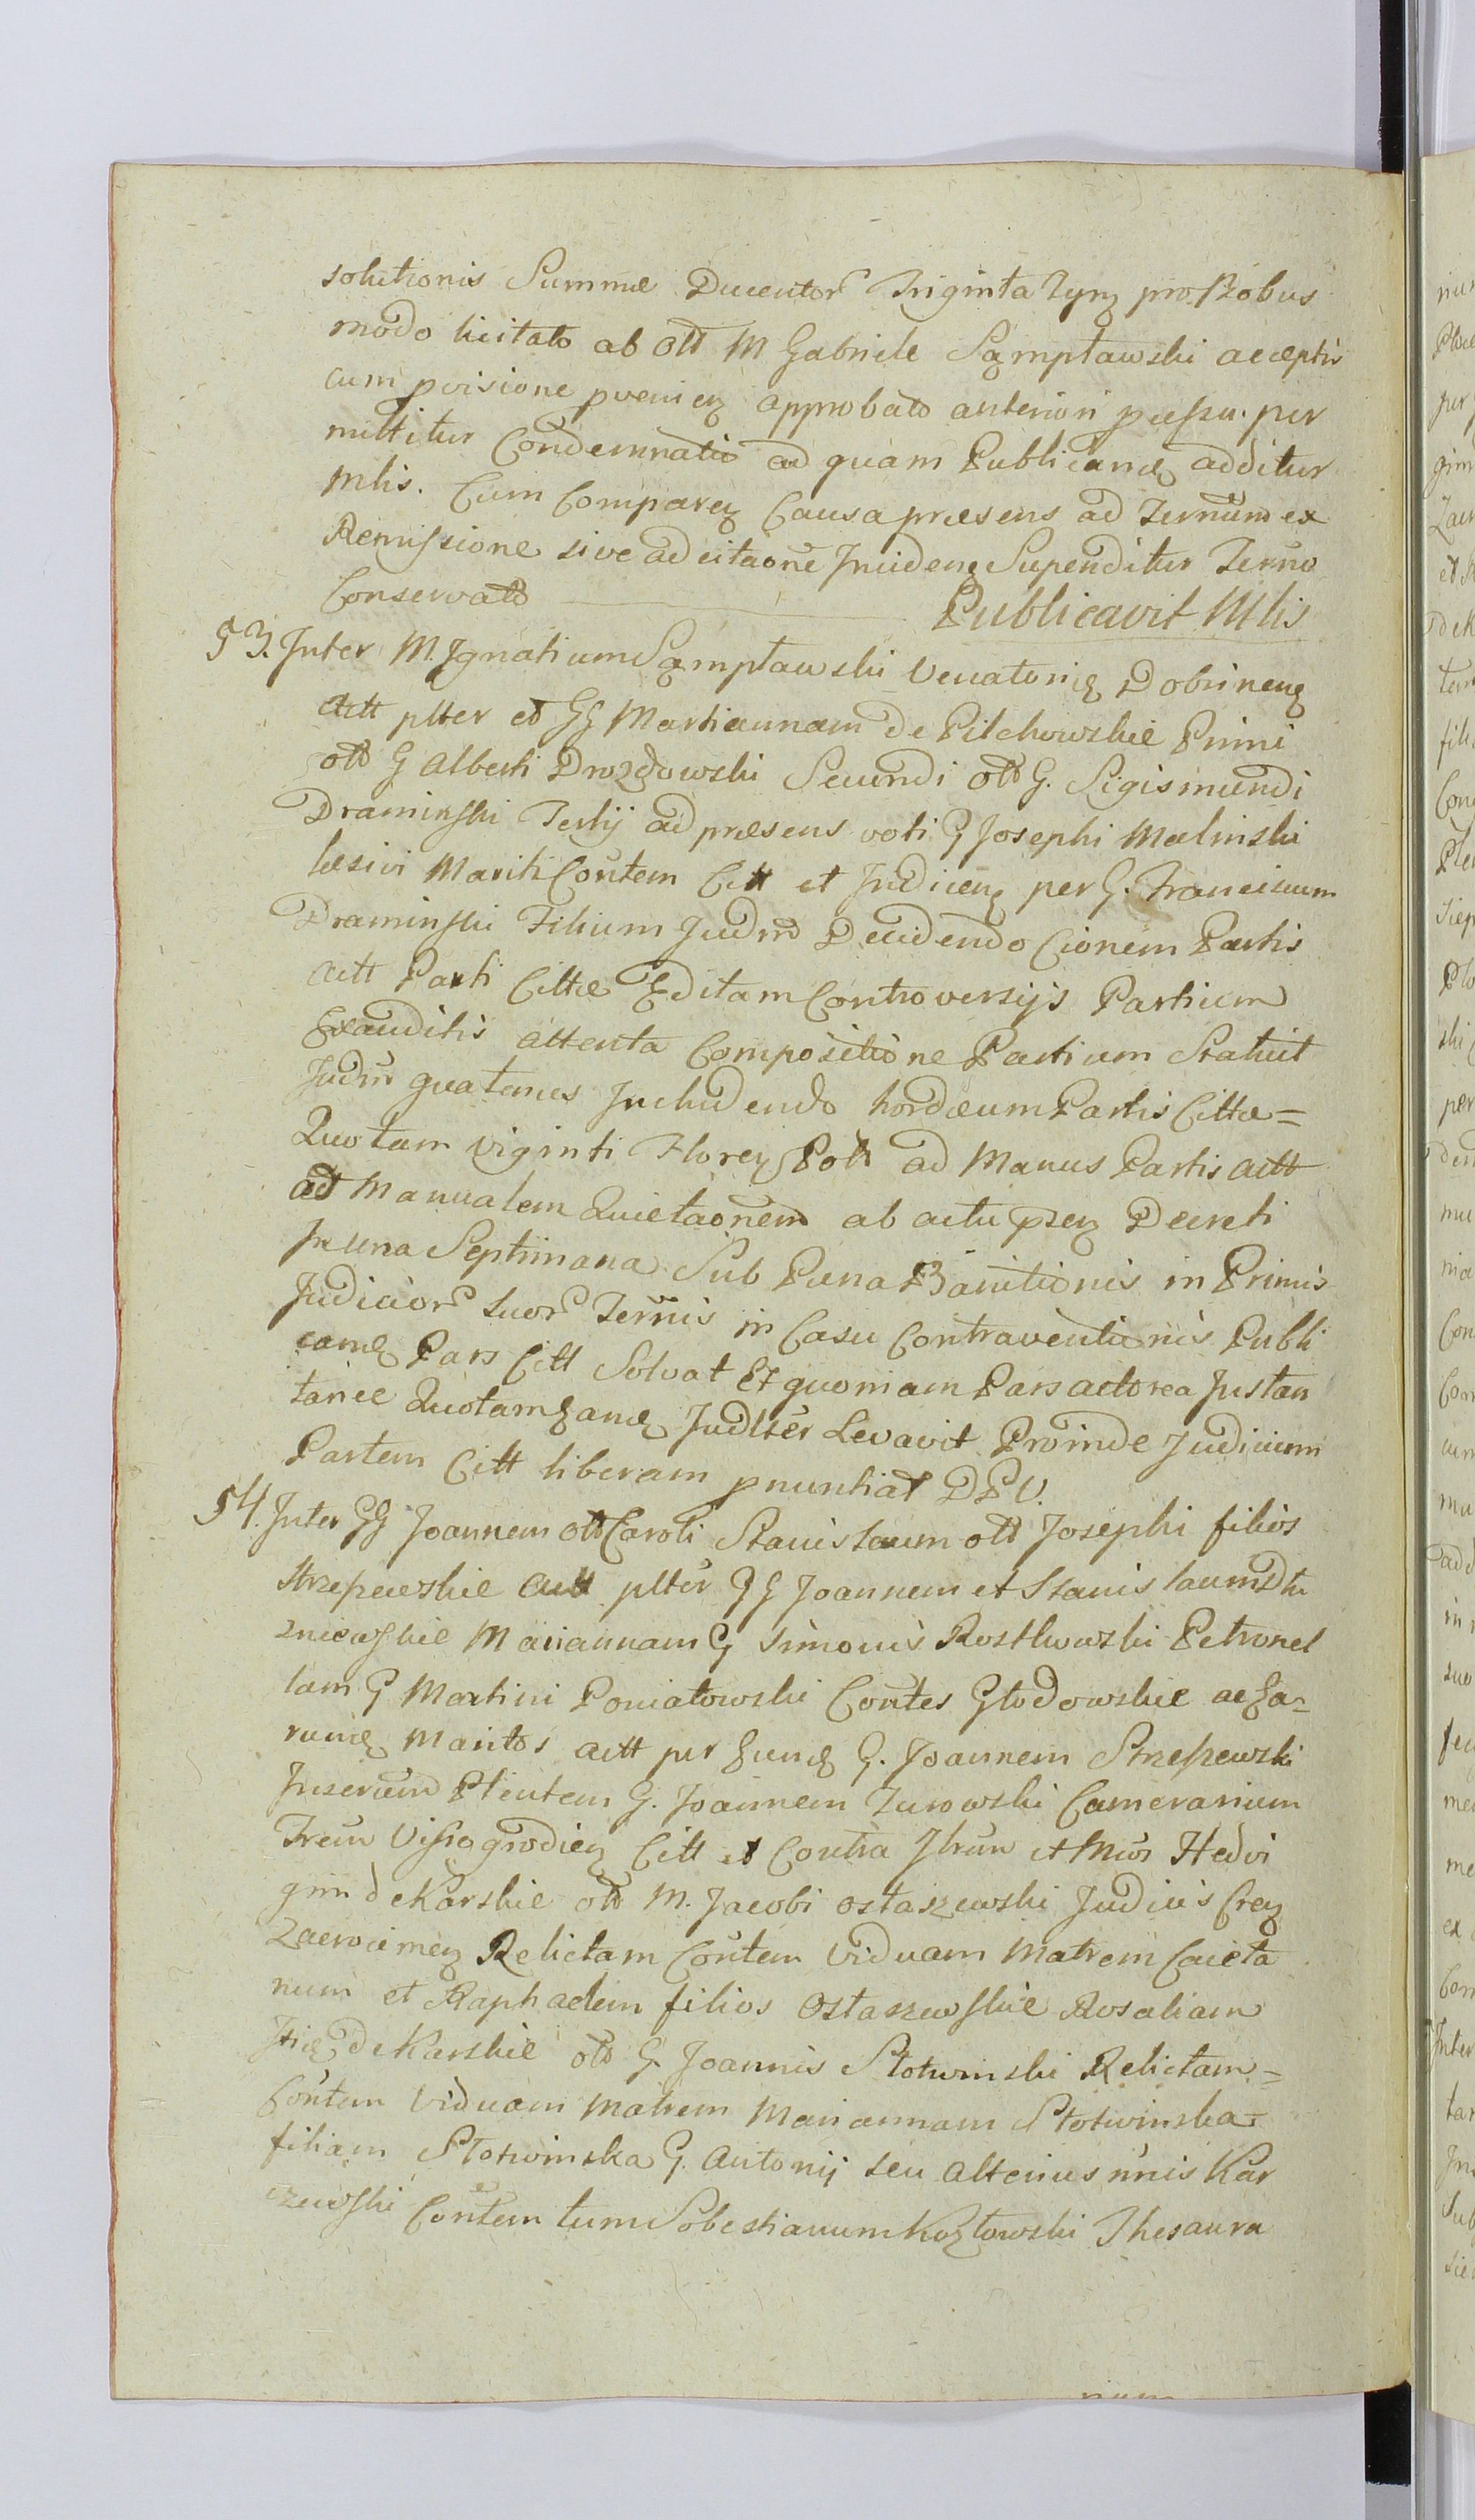 solutionis Summæ Ducentor Triginta Tynf pro Bobus
modo licitato ab Olt M Gabriele Sąmpławski acceptis
cum pvisione pvenien approbato anteriori pcessu per
mittitur Condemnatio ad quam Publicand additur
Mlis. Cum Comparen Causa præsens ad Ternum ex
Remissione sive ad citaone Inciden Supenditur Terno
Conservato Publicavit Mlis
53. Inter M. Ignatium Sąmpławski Venatorid Dobrinen
Actt plter et GG Martiannam de Pilchowskie Primi
olt G Alberti Drozdowski Secundi olt G. Sigismundi
Draminski Tertij ad præsens voti G Josephi Malinski
læsivi Mariti Contem Citt et Indicen per G. Franciscum
Draminski Filium Judm Decidendo Cionem Partis
actt Parti Cittæ Editam Controversijs Partium
Exauditis attenta Compositione Partium Statuit
Judm quatenus Includendo hordeum Partis Cittæ=
Quotam viginti Floren Pol ad Manus Partis actt
ad Manualem Quietaonem ab actu psen Decreti
In una Septimana Sub Pæna Banitionis in Primis
Judicior suor Ternis in Casu Contraventionis Publi
cand Pars Citt Solvat Et quoniam Pars actorea Instan
tanee Quotam eand Judlter Levavit Proinde Judicium
Partem Citt liberam pnuntiat DPV.
54. Inter GG Joannem olt Caroli Stanislaum olt Josephi filios
Strzeperskie Actt plter GG Joannem et Stanislaum Dłu
zniewskie Mariannam G Simonis Rostkowski Petronel
lam G Martini Poniatowski Contes Głodowskie ac ea=
rund Maritos actt per eund G. Joannem Strzeszewski
Inserum Plentem G. Joannem Zurowski Camerarium
Trem Vissogrodien Citt et Contra Ihrum et Mus Hedvi
gim de Karskie olt M. Jacobi Ostaszewski Judicis Cren
Zacrocimen Relictam Contem Viduam Matrem Caieta
num et Raphaelem filios Ostaszewskie Rosaliam
Itid de Karskie olt G. Joannis Słotwinski Relictam=
Contem Viduam Matrem Mariannam Słotwinska=
filiam Słotwinska G. Antonij seu alterius nnis Kar
czewski Contem tum Sobestianum Kozłowski Thesaura
num